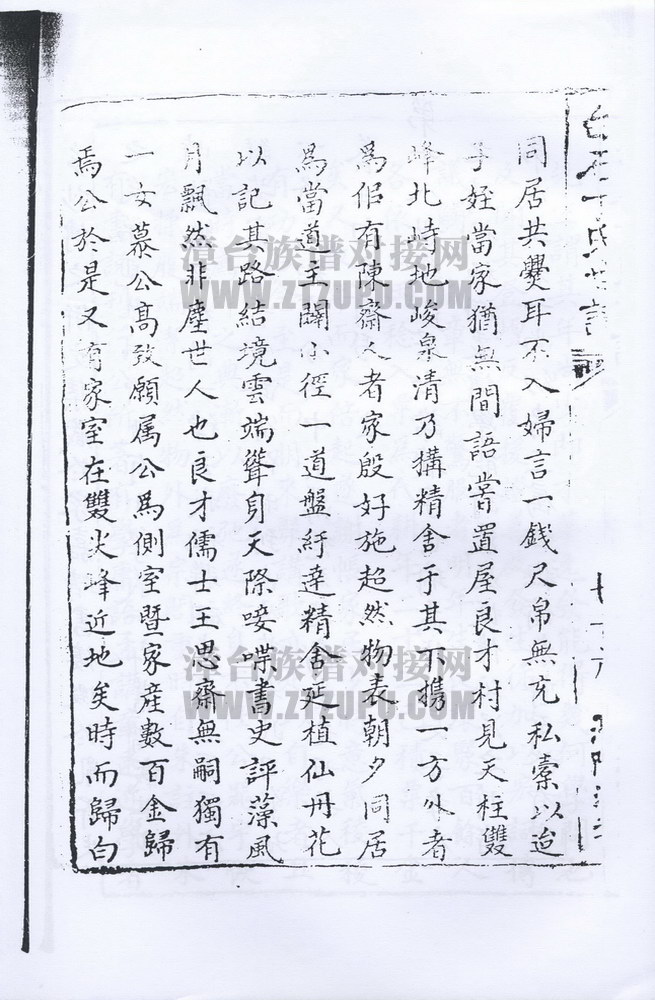 同居共爨耳不入婦言一錢尺帛無充私橐以迨
子姪當家猶無間語嘗置屋良才村見天柱雙
峰北峙地峻泉清乃搆精舍于其下携一方外者
為侶有陳齋公者家殷好施超然物表朝夕同居
為當道主闢小徑一道盤紆達精舍延植仙丹花
以記其路結境雲端聳身天際唼喋書史評藻風
月飄然非塵世人也良才儒士王思齋無嗣獨有
一女慕公高致願属公為側室暨家產數百金歸
焉公於是又有家室在雙尖峰近地矣時而歸白
漳台族谱对接网
WWW.ZTZUPU.COM
漳台族谱对接网
WWW.ZTZUPU.COM